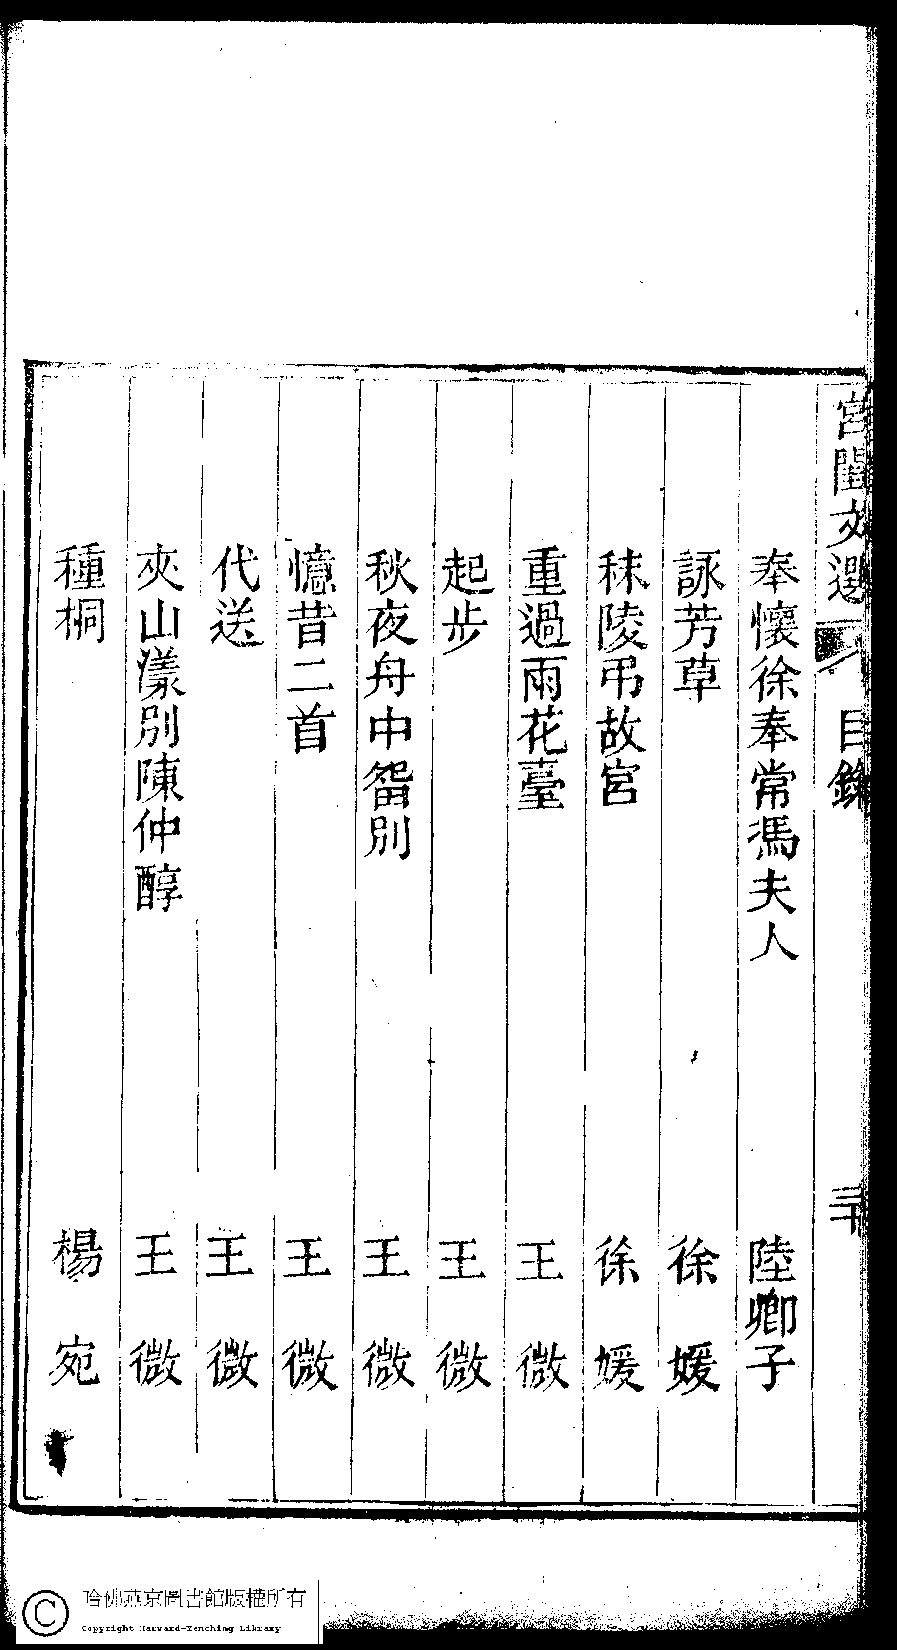 宮閨文選 目錄 三十
奉懷徐奉常馮夫人 陸卿子
詠芳草 徐媛
秣陵弔故宮 徐媛
重過雨花臺 王微
起步 王微
秋夜舟中畱別 王微
憶昔二首 王微
代送 王微
夾山漾別陳仲醇 王微
種桐 楊宛
哈佛燕京圖書館版權所有
Copyright Harvard-Yenching Library